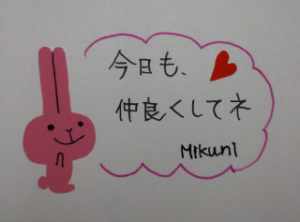 今日も、
仲良くしてネ
Mikuni